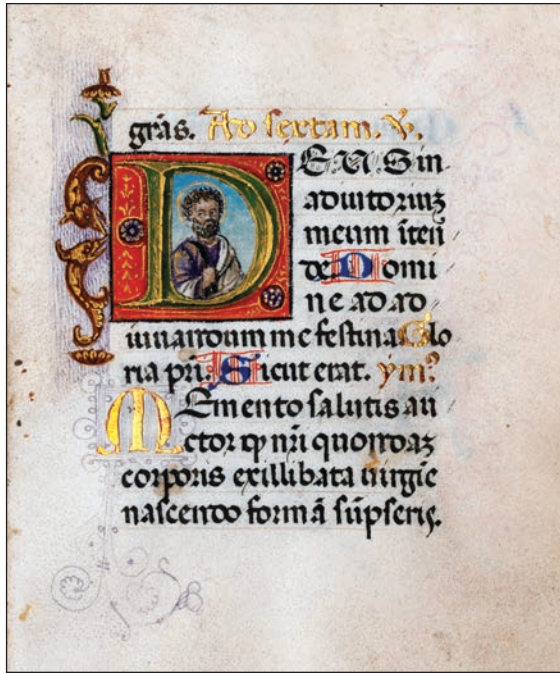 grãs. Ad sextam. ℣.
DEUS in
adiutoriuʒ
meum ītẽ
de Domi
ne ad ad
iuuandum me festina Glo
ria pri. Sicut erat. ymꝰ
MEmento salutis au
ctor ꝙ nr̃i quondaʒ
corporis ex illibata uirgĩe
nascendo formã sũpseris.